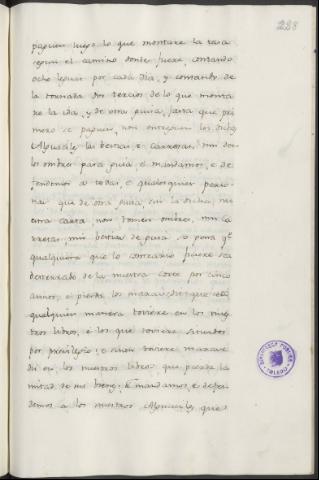 228
paguen luego lo que montare la tasa
segun el camino donde fuere, contando
ocho leguas por cada dia, y contando de
la tornada dos tercios de lo que monta
re la ida, y de otra guisa, fasta que pri
mero se paguen, non entreguen los dichos
Alguaciles las bestias, e carretas, nin den
los ombres para guia, e mandamos, e de
fendemos a todas, e qualesquier perso
nas que de otra guisa, sin la dicha nu
estra carta non tomen ombres, nin ca
rretas, nin bestias de guia, so pena qe
qualquiera que lo contrario ficiere sea
desterrado de la nuestra corte por cinco
annos, e pierda los maravedis que en
qualquier manera toviere en los nues
tros libros, e los que toviere situados
por privilegio; e si non toviere marave
dis en los nuestros libros, que pierda la
mitad de sus bienes; E mandamos, e defen
demos a los nuestros Alguaciles, que
BIBLIOTECA PUBLICA
TOLEDO